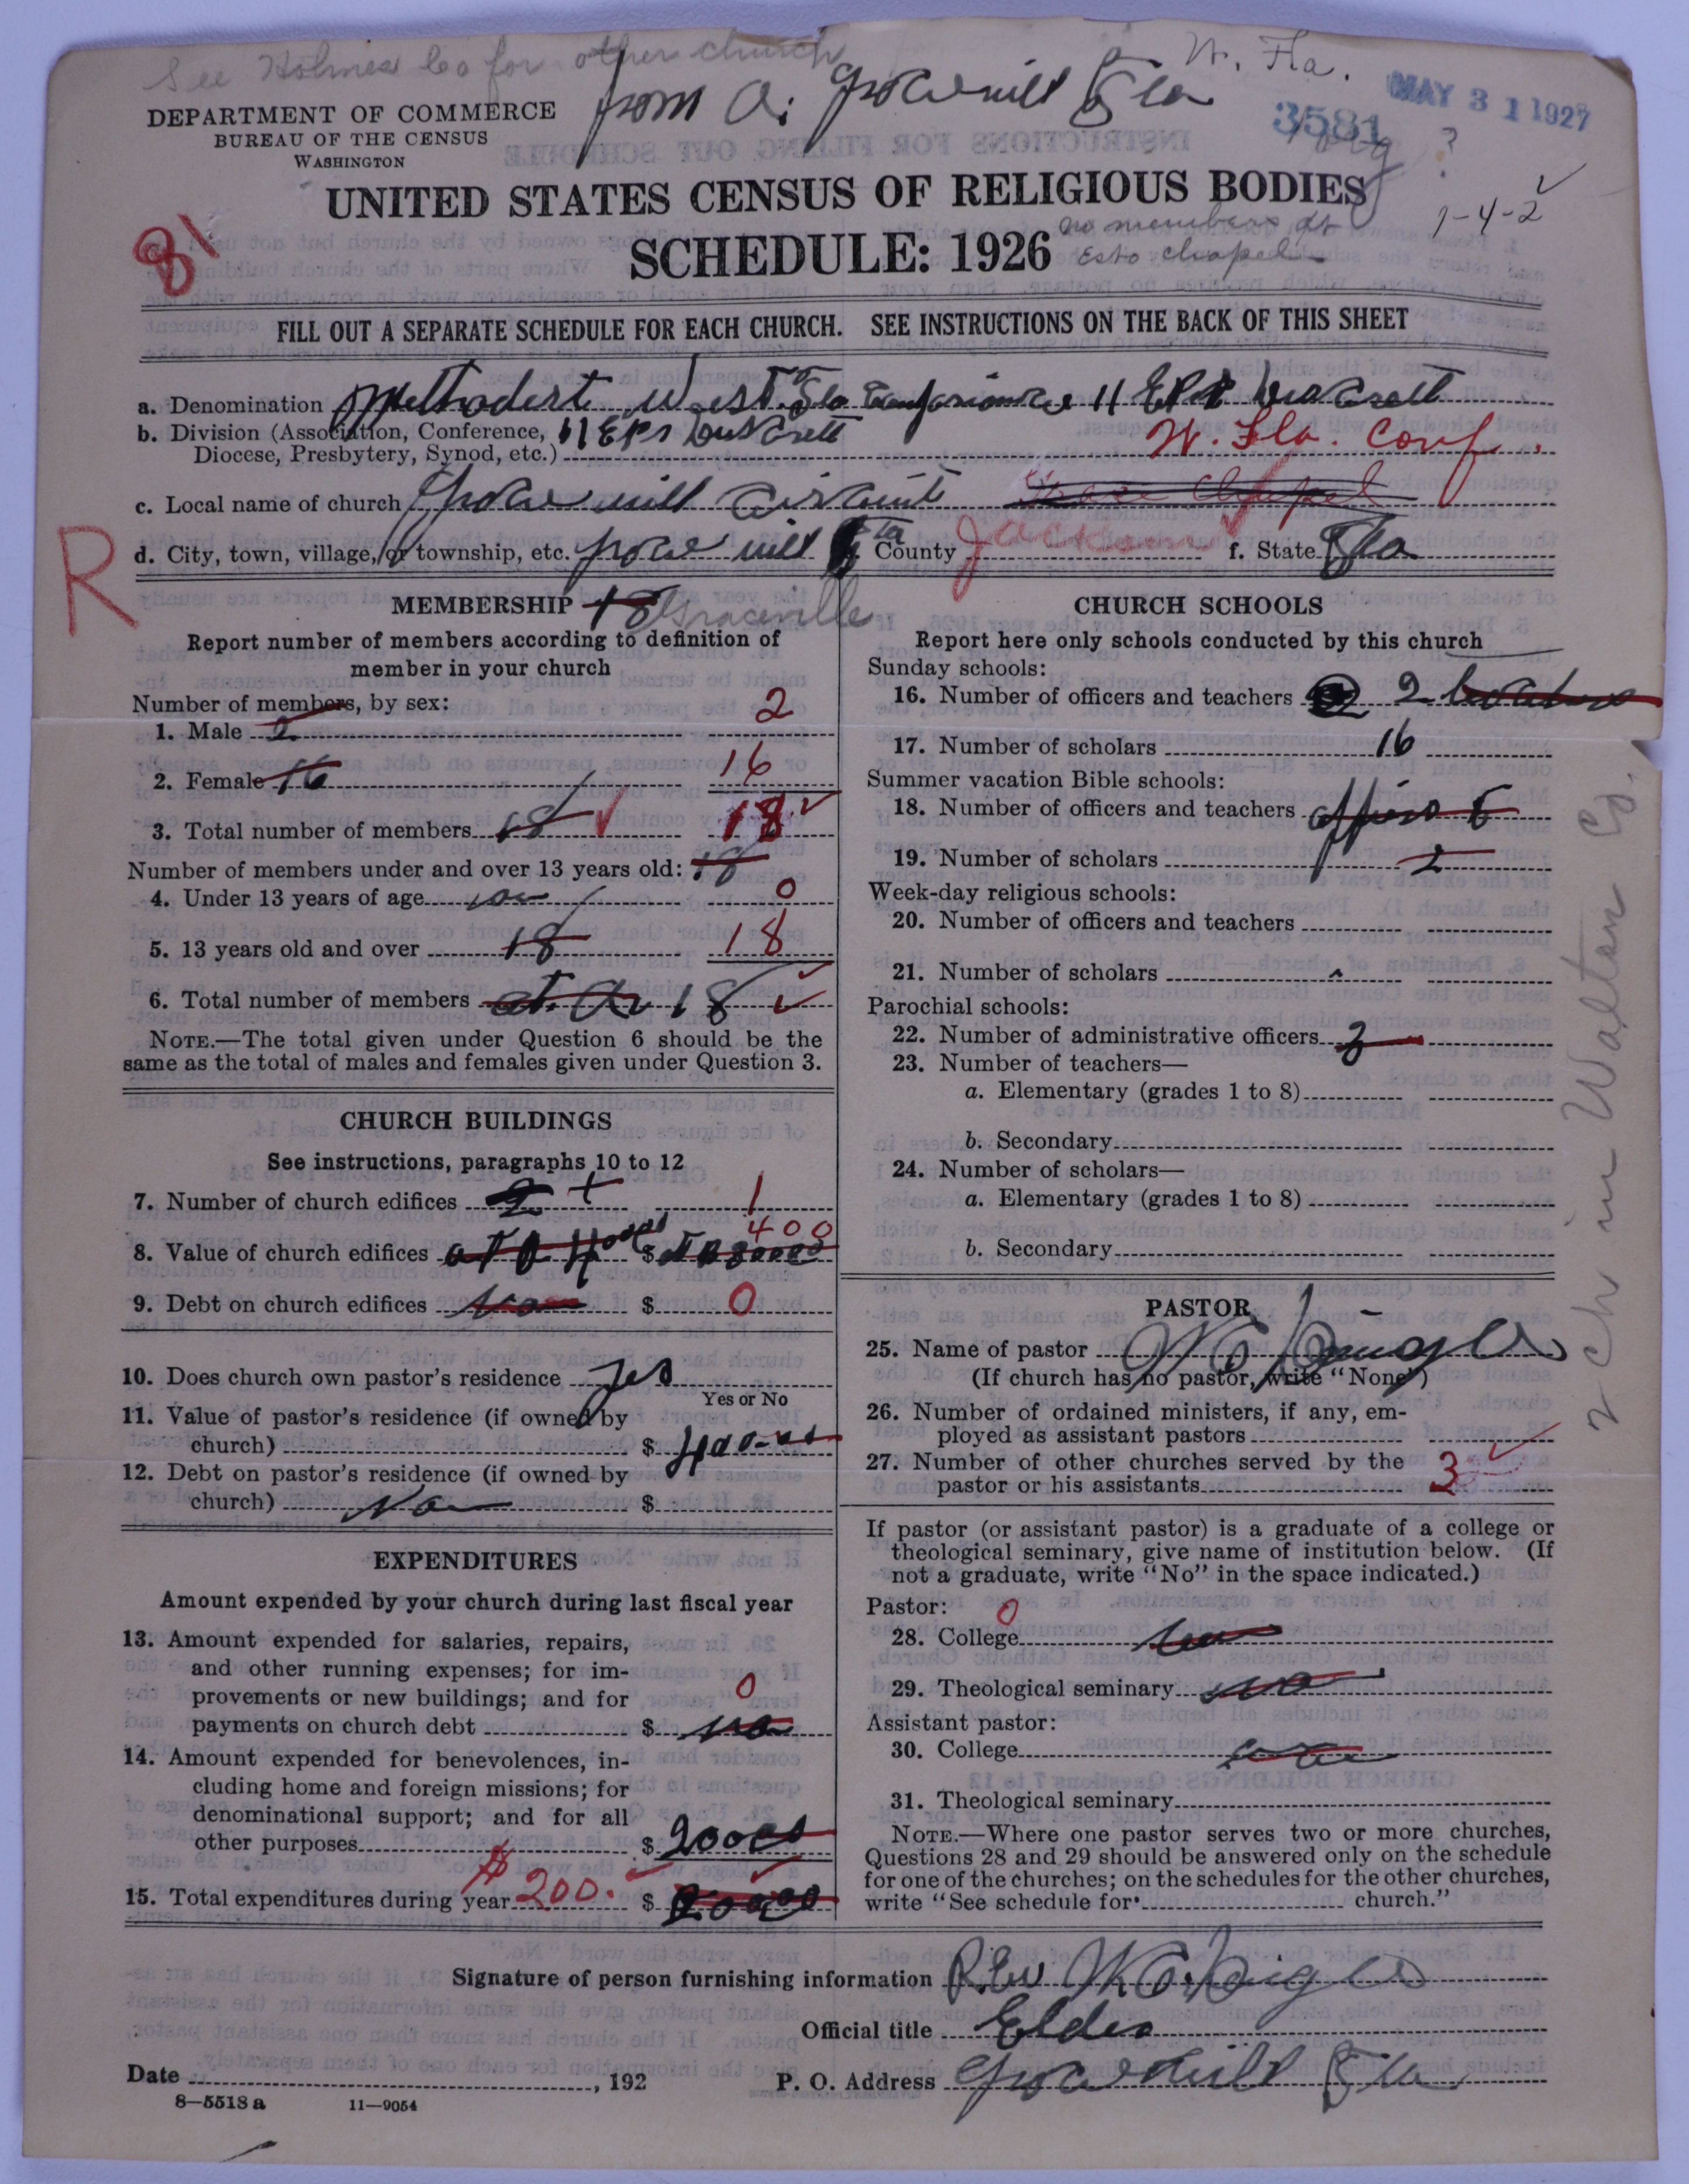 See Holmes Co for other church
W. Fla.
MAY 31 1927
from
Fla
3581
DEPARTMENT OF COMMERCE
BUREAU OF THE CENSUS
WASHINGTON
UNITED STATES CENSUS OF RELIGIOUS BODIES
1-4-2
81
SCHEDULE: 1926
no members at
Esto chapel
FILL OUT A SEPARATE SCHEDULE FOR EACH CHURCH. SEE INSTRUCTIONS ON THE BACK OF THIS SHEET
a. Denomination Methodist West Fla
b. Division (Association, Conference,
Diocese, Presbytery, Synod, etc.) W. Fla. Conf.
c. Local name of church Chapel
d. City, town, village, or township, etc. Fla County Jackson f. State Fla
R
MEMBERSHIP 18 Graceville
Report number of members according to definition of
member in your church
Number of members, by sex:
1. Male 2 2
2. Female 16 16
3. Total number of members 18 18
Number of members under and over 13 years old: 18
4. Under 13 years of age 0
5. 13 years old and over 18 18
6. Total number of members 18
NOTE.—The total given under Question 6 should be the
same as the total of males and females given under Question 3.
CHURCH BUILDINGS
See instructions, paragraphs 10 to 12
7. Number of church edifices 2 1
8. Value of church edifices $ 400
9. Debt on church edifices $ 0
10. Does church own pastor's residence yes
Yes or No
11. Value of pastor's residence (if owned by
church) $ 400
12. Debt on pastor's residence (if owned by
church) $
EXPENDITURES
Amount expended by your church during last fiscal year
13. Amount expended for salaries, repairs,
and other running expenses; for im-
provements or new buildings; and for
payments on church debt $ 0
14. Amount expended for benevolences, in-
cluding home and foreign missions; for
denominational support; and for all
other purposes $ 200
15. Total expenditures during year $ 200. $
CHURCH SCHOOLS
Report here only schools conducted by this church
Sunday schools:
16. Number of officers and teachers 2
17. Number of scholars 16
Summer vacation Bible schools:
18. Number of officers and teachers
19. Number of scholars 2
Week-day religious schools:
20. Number of officers and teachers
21. Number of scholars
Parochial schools:
22. Number of administrative officers 3
23. Number of teachers—
a. Elementary (grades 1 to 8)
b. Secondary
24. Number of scholars—
a. Elementary (grades 1 to 8)
b. Secondary
2 Ch in Walton Co.
PASTOR
25. Name of pastor
(If church has no pastor, write "None")
26. Number of ordained ministers, if any, em-
ployed as assistant pastors
27. Number of other churches served by the
pastor or his assistants 3
If pastor (or assistant pastor) is a graduate of a college or
theological seminary, give name of institution below. (If
not a graduate, write "No" in the space indicated.)
Pastor: 0
28. College
29. Theological seminary no
Assistant pastor:
30. College
31. Theological seminary
NOTE.—Where one pastor serves two or more churches,
Questions 28 and 29 should be answered only on the schedule
for one of the churches; on the schedules for the other churches,
write "See schedule for church."
Signature of person furnishing information Rev
Official title Elder
Date , 192 P. O. Address Fla
8—5518 a 11—9054